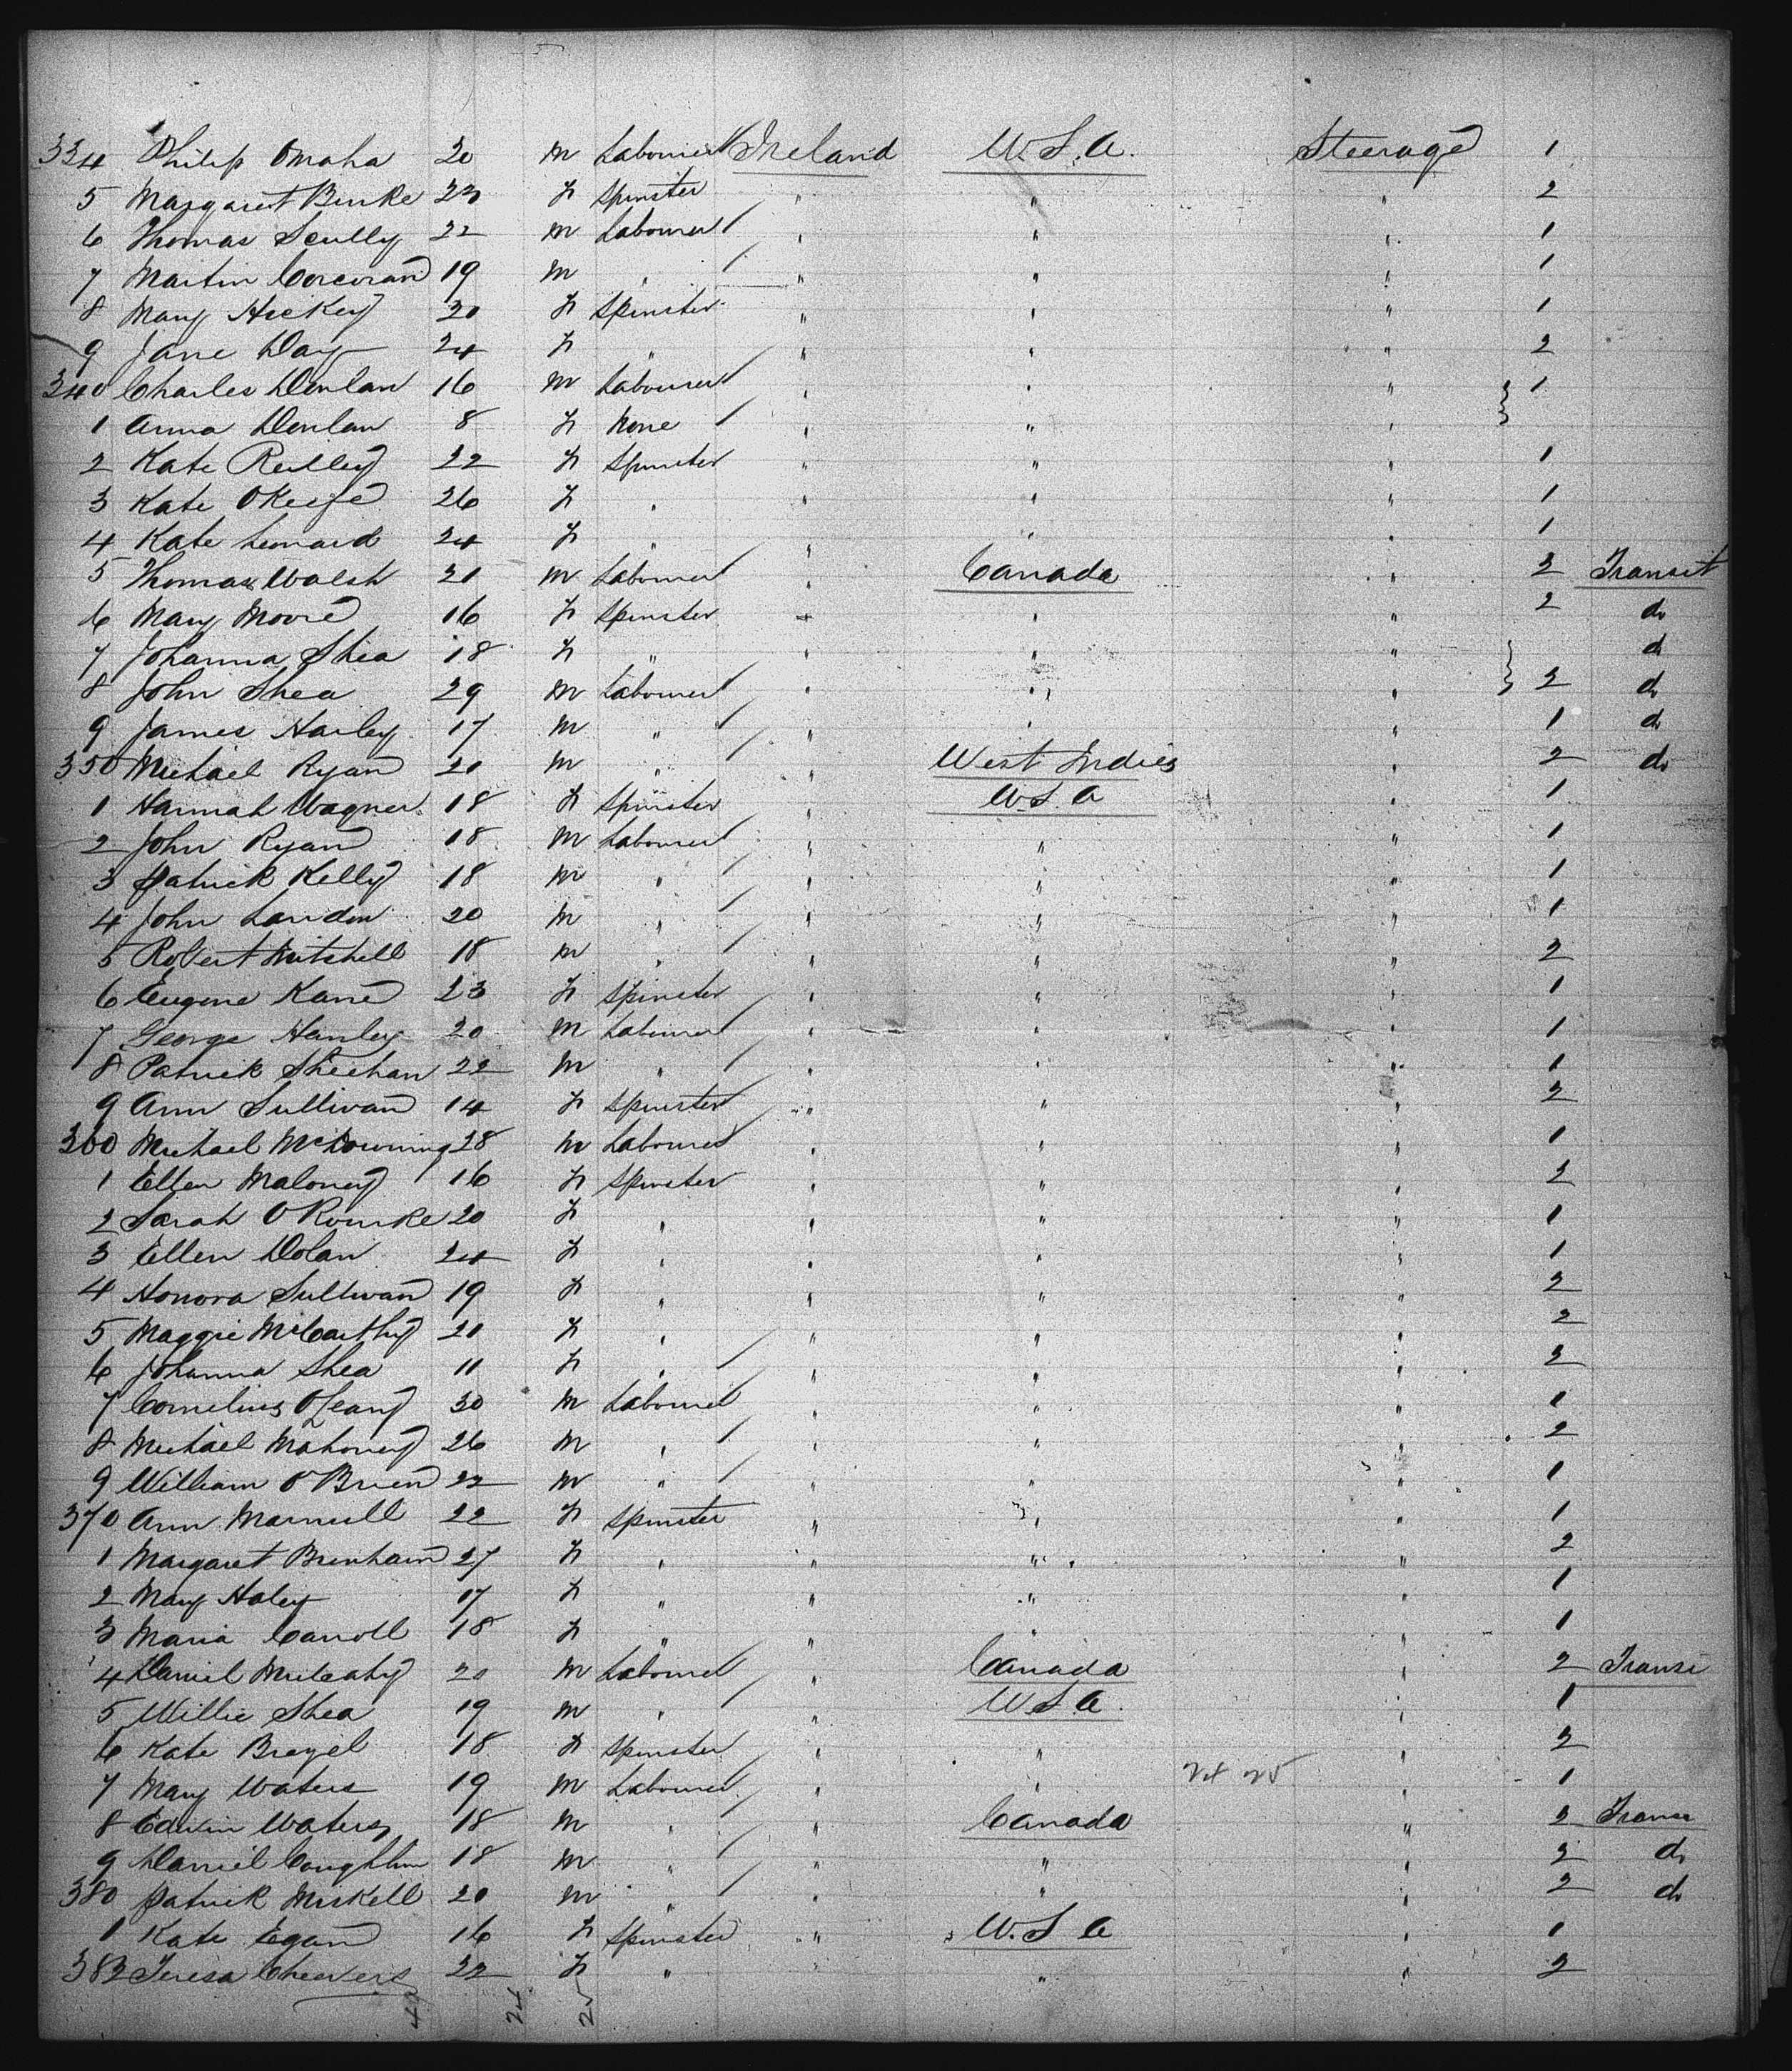 334 Philip Omaha 20 m Labourer Ireland U.S.A. Steerage 1
5 Margaret Burke 23 f Spinster " " " 2
6 Thomas Scully 22 m Labourer " " " 1
7 Martin Corcoran 19 m " " " " 1
8 Mary Hickey 20 f Spinster " " " 1
9 Jane Day 24 f " " " " 2
340 Charles Donlan 16 m Labourer " " " 1
1 Anna Donlan 8 f None " " "
2 Kate Reilley 22 f Spinster " " " 1
3 Kate OKeefe 26 f " " " " 1
4 Kate Leonard 24 f " " " " 1
5 Thomas Walsh 21 m Labourer " Canada " 2 Transit
6 Mary Moore 16 f Spinster " " " 2 do
7 Johanna Shea 18 f " " " " do
8 John Shea 29 m Labourer " " " 2 do
9 James Harley 17 m " " " " 1 do
350 Michael Ryan 20 m " " West Indies " 2 do
1 Hannah Wagner 18 f Spinster " U.S.A " 1
2 John Ryan 18 m Labourer " " " 1
3 Patrick Kelly 18 m " " " " 1
4 John Landon 20 m " " " " 1
5 Robert Mitshell 18 m " " " " 2
6 Eugene Kane 23 f Spinster " " " 1
7 George Hanley 20 m Labourer " " " 1
8 Patrick Sheehan 22 m " " " " 1
9 Ann Sullivan 14 f Spinster " " " 2
360 Michael McDowning 28 m Labourer " " " 1
1 Ellen Maloney 16 f Spinster " " " 2
2 Sarah O'Rourke 20 f " " " " 1
3 Ellen Dolan 24 f " " " " 1
4 Honora Sullivan 19 f " " " " 2
5 Maggie McCarthy 21 f " " " " 2
6 Johanna Shea 11 f " " " " 2
7 Cornelius OLeary 30 m Labourer " " " 1
8 Michael Mahoney 26 m " " " " 2
9 William O'Brien 22 m " " " " 1
370 Ann Marnell 22 f Spinster " " " 1
1 Margaret Brenham 27 f " " " " 2
2 Mary Haley 17 f " " " " 1
3 Maria Carroll 18 f " " " " 1
4 Daniel Mulcahy 20 m Labourer " Canada " 2 Transi
5 Willie Shea 19 m " " U.S.A. " 1
6 Kate Brazel 18 f Spinster " " " 2
7 Mary Waters 19 m Labourer " " 24 25 " 1
8 Edwin Waters 18 m " " Canada " 2 Trans
9 Daniel Coughlin 18 m " " " " 2 do
380 Patrick Miskell 20 m " " " " 2 do
1 Kate Egan 16 f Spinster " U.S.A " 1
382 Teresa Cheevers 22 f " " " 2
24 25